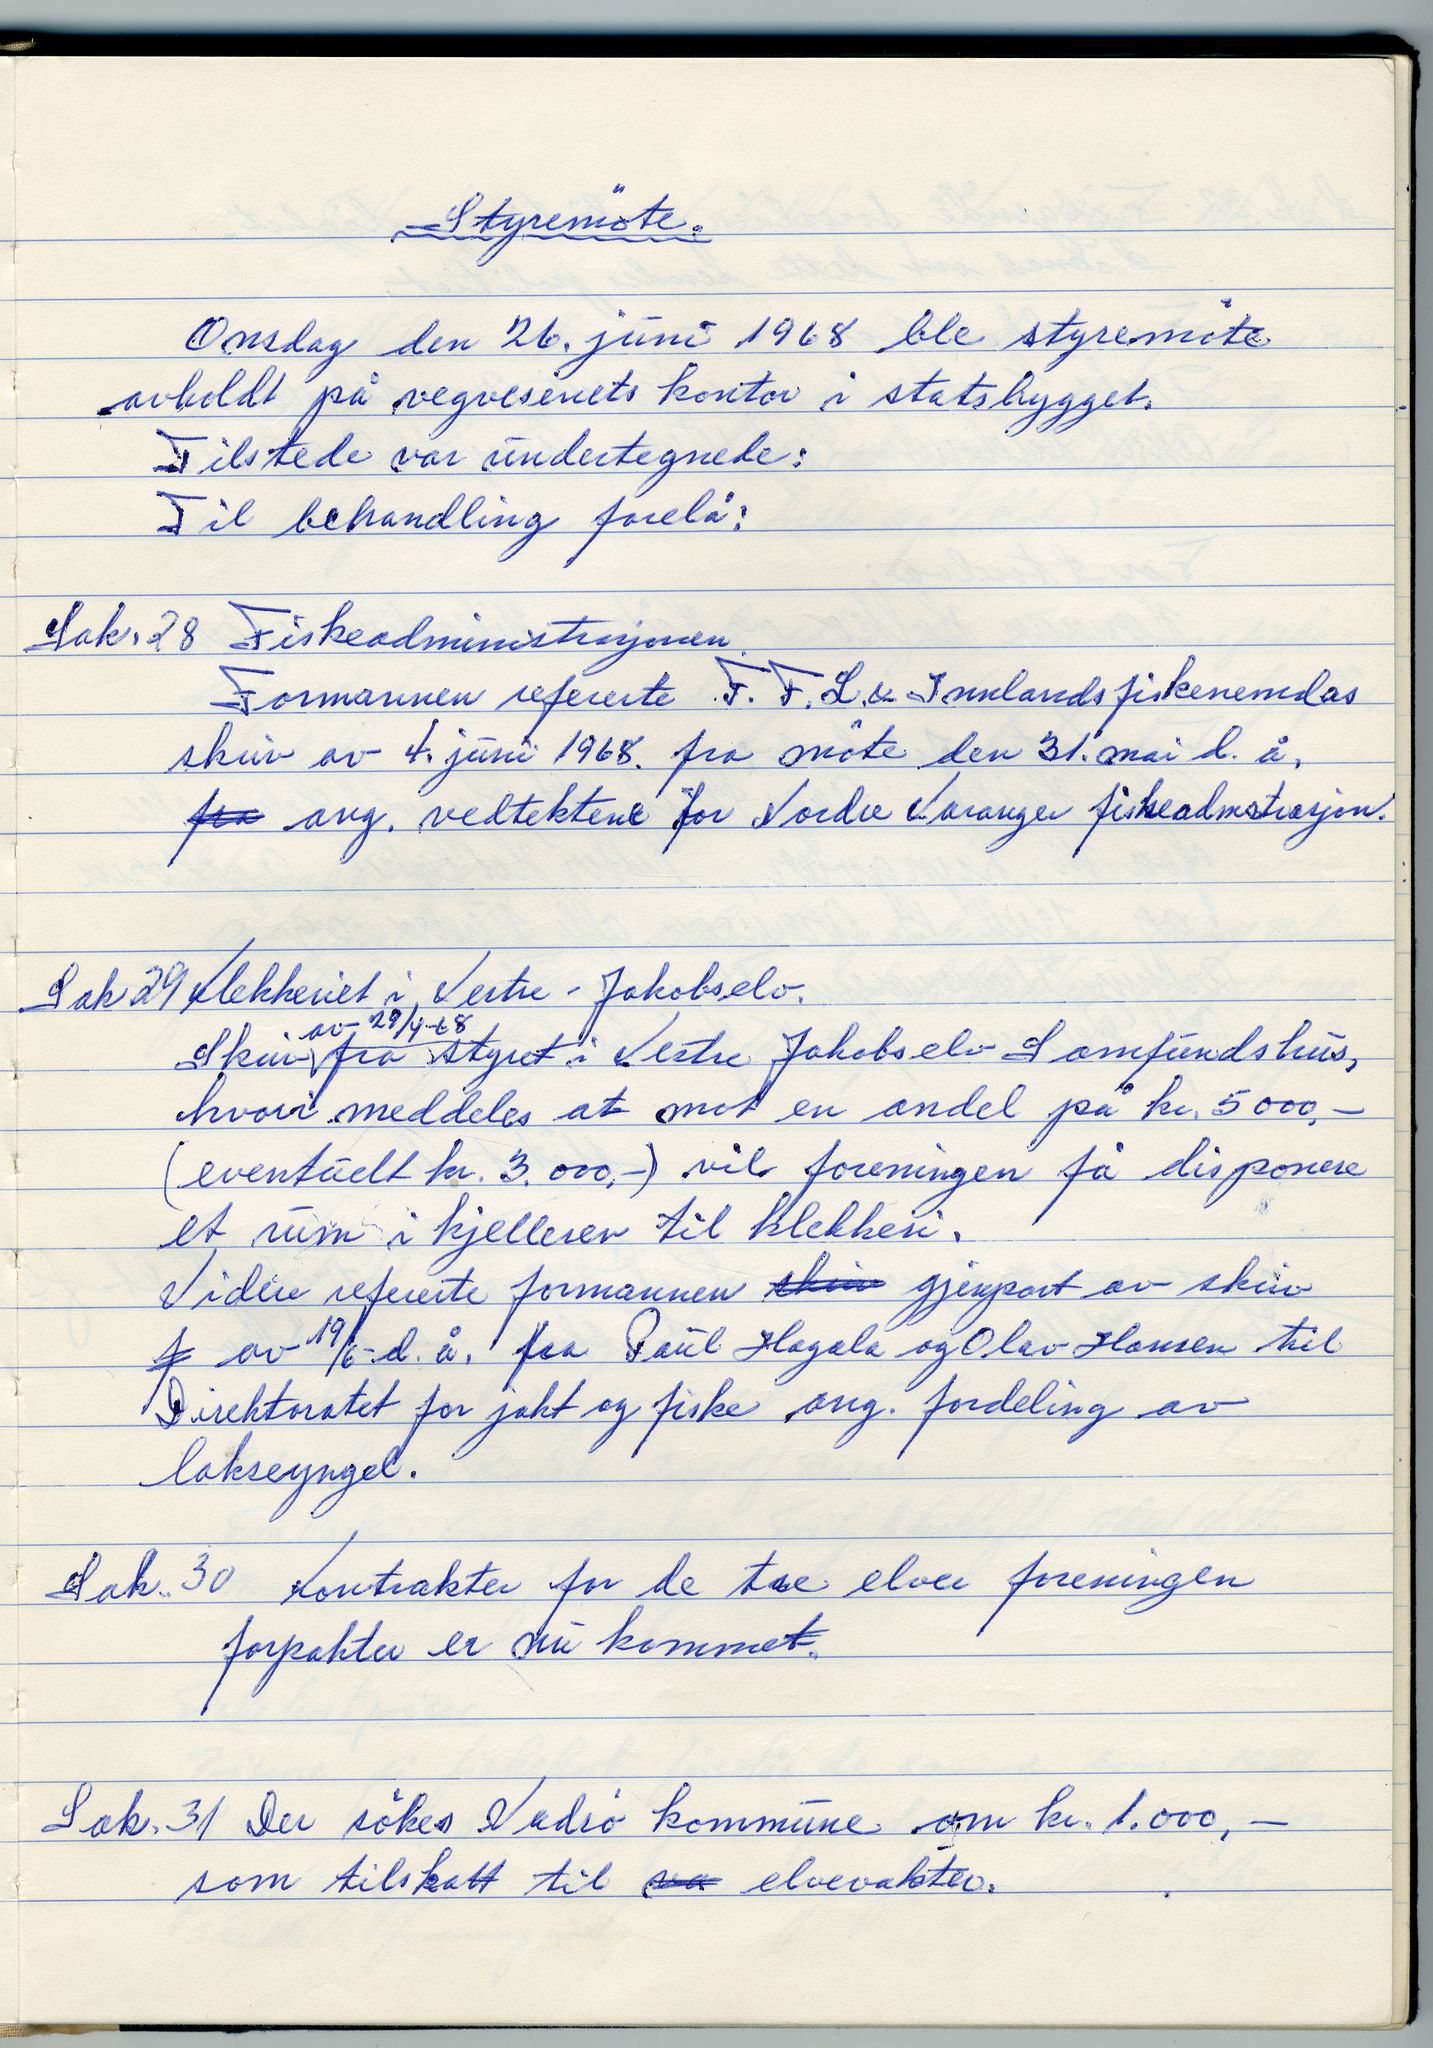 Styremöte.
Onsdag den 26. juni 1968 ble styremöte
avholdt på vegvesenets kontor i statsbygget.
Tilstede var undertegnede:
Til behandling forelå:
Sak. 28 Fiskeadministrasjonen.
Formannen refererte F.F.L. & Innlandsfiskenemdas
skriv av 4. juni 1968. fra möte den 31. mai d. å.
fra ang. vedtektene for Nordre Varanger fiskeadmstrasjon.
Sak 29 Klekkeriet i Vestre-Jakobselv.
av 29/4-68
Skriv fra styret i Vestre Jakobselv Samfundshus,
hvori meddeles at mot en andel på kr. 5000,-
(eventuelt kr. 3.000,-) vil foreningen få disponere
et rum i kjelleren til klekkeri.
Videre refererte formannen skriv gjenpart av skriv
f av 19/6-d.å. fra Paul Hagala og Olav Hansen til
Direktoratet for jakt og fiske ang. fordeling av
lakseyngel.
Sak. 30 Kontrakter for de tre elver foreningen
forpakter er nu kommet.
Sak. 31 Der sökes Vadsö kommune om kr. 1.000,-
som tilskott til va elvevakter.